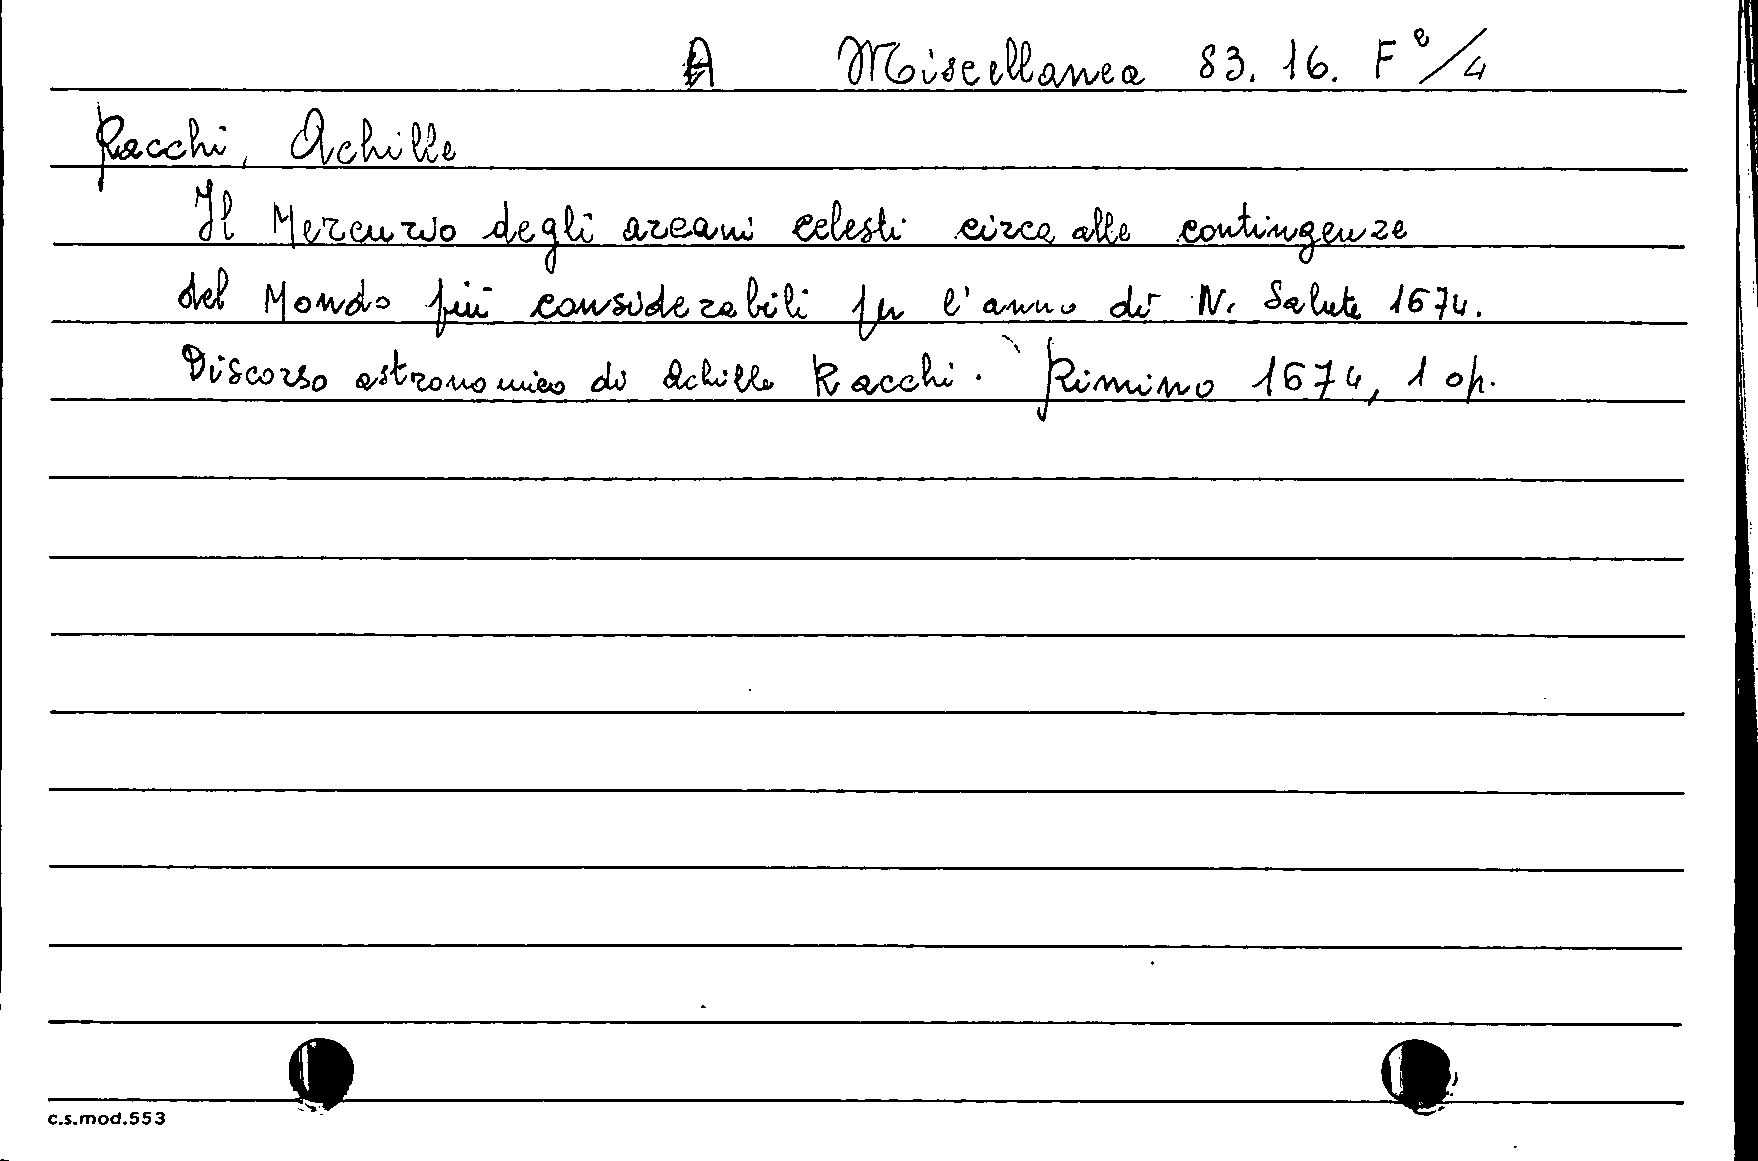 A Miscellanea 83. 16. F e/4
Racchi, Achille
Il Mercurio degli arcani celesti circa alle contingenze
del Mondo più considerabili per l'anno di N. Salute 1674.
Discorso astronomico di Achille Racchi. Rimino 1674, 1 op.
c.s.mod.553